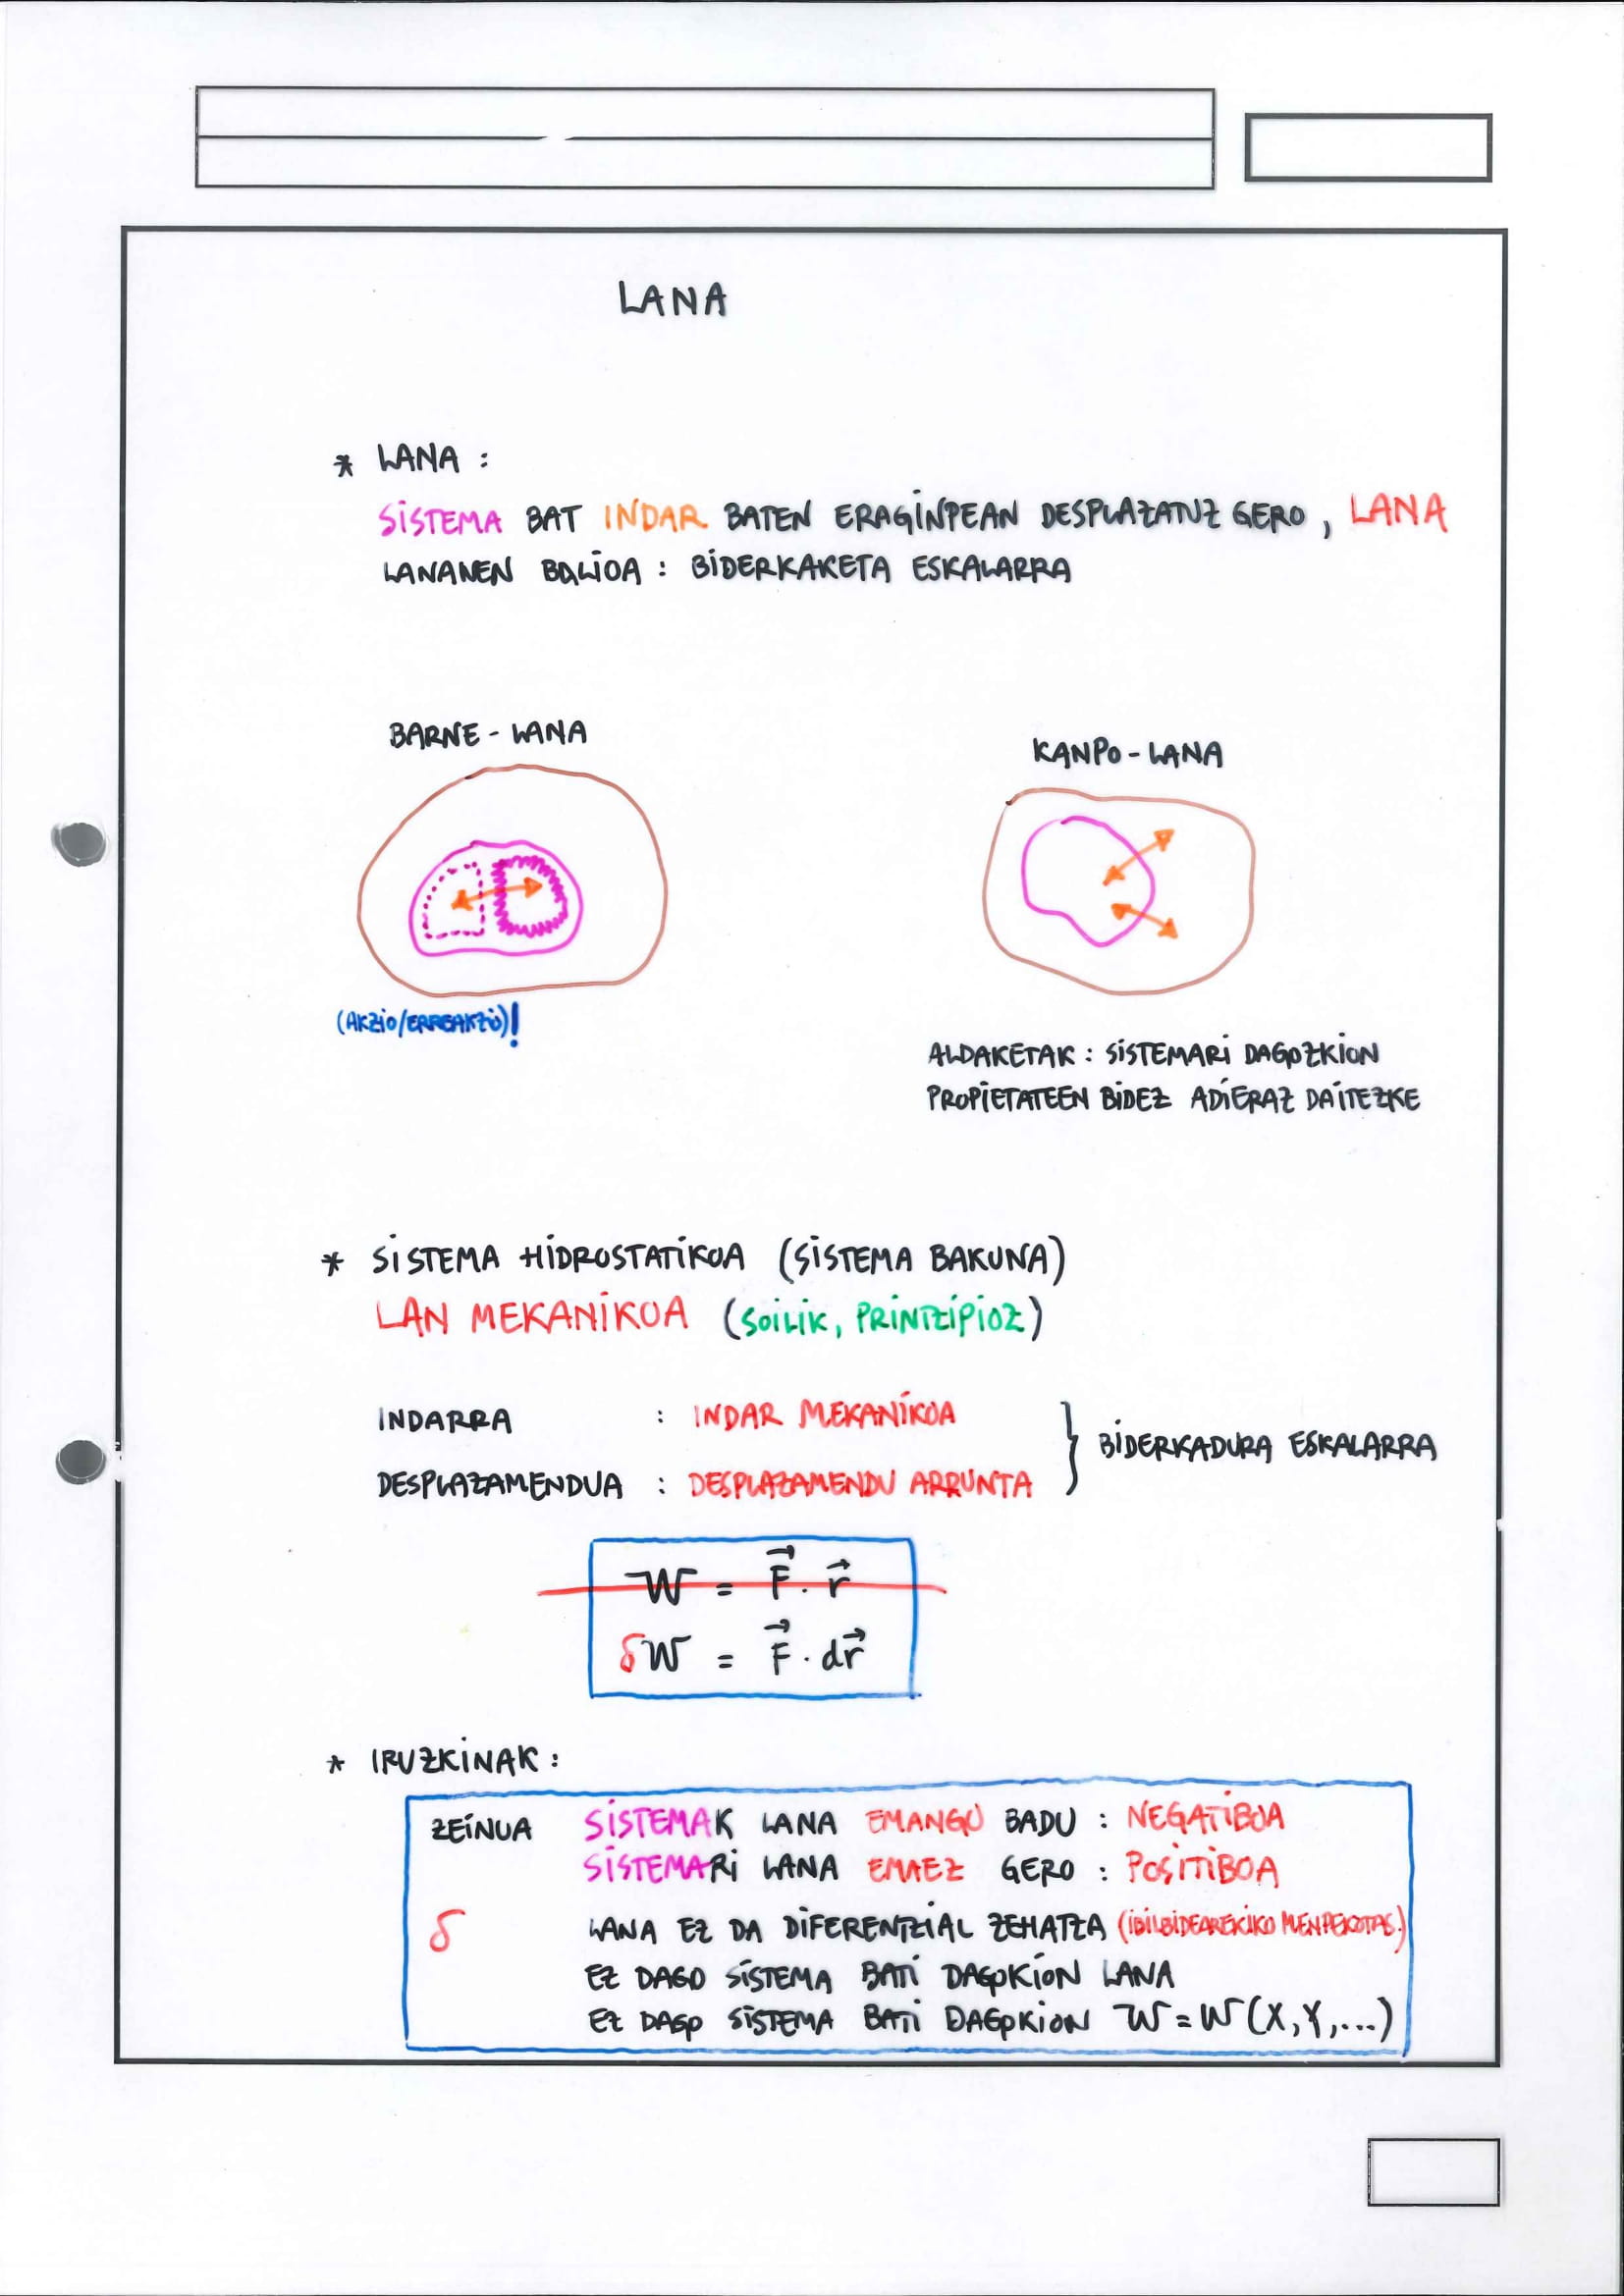 LANA
* LANA :
SISTEMA BAT INDAR BATEN ERAGINPEAN DESPLAZATUZ GERO, LANA
LANANEN BALIOA : BIDERKAKETA ESKALARRA
BARNE-LANA
KANPO-LANA
(AKZIO/ERREAKZIO)!
ALDAKETAK : SISTEMARI DAGOZKION
PROPIETATEEN BIDEZ ADIERAZ DAITEZKE
* SISTEMA HIDROSTATIKOA (SISTEMA BAKUNA)
LAN MEKANIKOA (SOILIK, PRINTZIPIOZ)
INDARRA : INDAR MEKANIKOA
DESPLAZAMENDUA : DESPLAZAMENDU ARRUNTA
} BIDERKADURA ESKALARRA
W = F⃗ · r⃗
δW = F⃗ · dr⃗
* IRUZKINAK :
ZEINUA SISTEMAK LANA EMANGO BADU : NEGATIBOA
SISTEMARI LANA EMAEZ GERO : POSITIBOA
δ LANA EZ DA DIFERENTZIAL ZEHATZA (IBILBIDEAREKIKO MENPEKOTAS.)
EZ DAGO SISTEMA BATI DAGOKION LANA
EZ DAGO SISTEMA BATI DAGOKION W = W(X,Y,...)